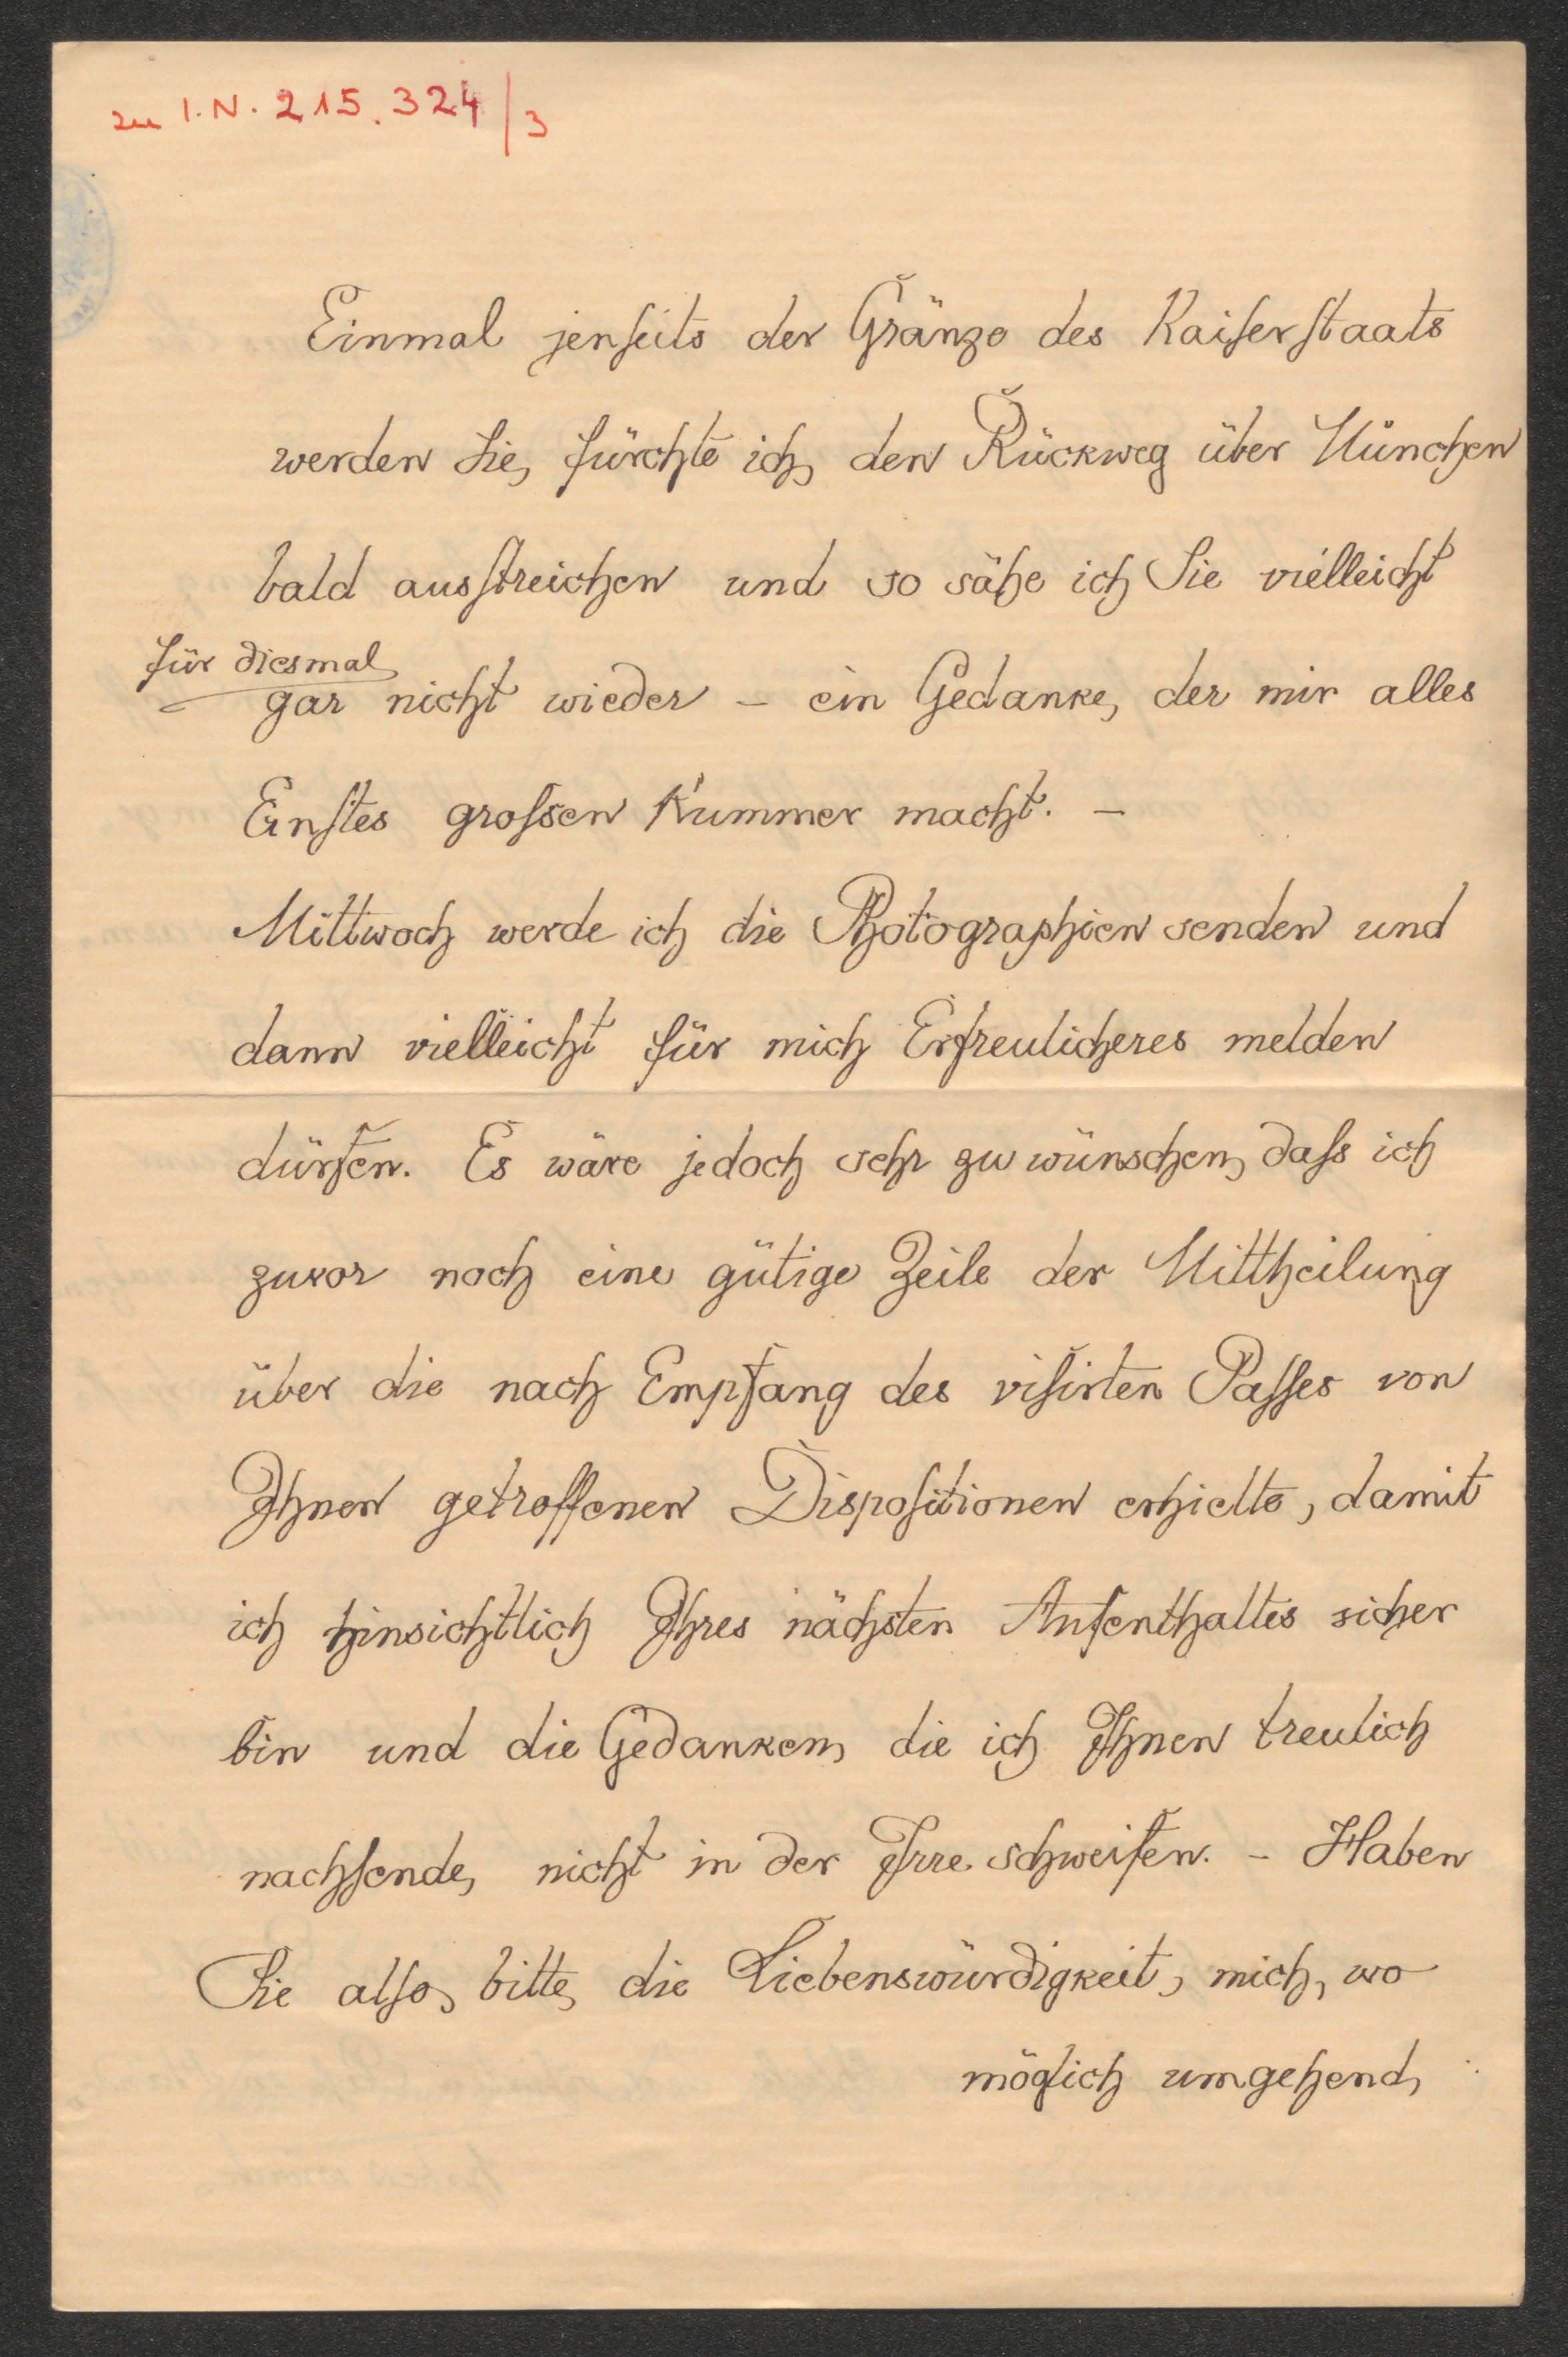 zu I.N. 215.324/3
Einmal jenseits der Gränze des Kaiserstaats
werden Sie, fürchte ich, den Rückweg über München
bald ausstreichen und so sähe ich Sie vielleicht
für diesmal
gar nicht wieder – ein Gedanke, der mir alles
Ernstes grossen Kummer macht. –
Mittwoch werde ich die Photographien senden und
dann vielleicht für mich Erfreulicheres melden
dürfen. Es wäre jedoch sehr zu wünschen, dass ich
zuvor noch eine gütige Zeile der Mittheilung
über die nach Empfang des visirten Passes von
Ihnen getroffenen Dispositionen erhielte, damit
ich hinsichtlich Ihres nächsten Aufenthaltes sicher
bin und die Gedanken, die ich Ihnen treulich
nachsende, nicht in der Irre schweifen. – Haben
Sie also, bitte, die Liebenswürdigkeit, mich, wo
möglich umgehend,